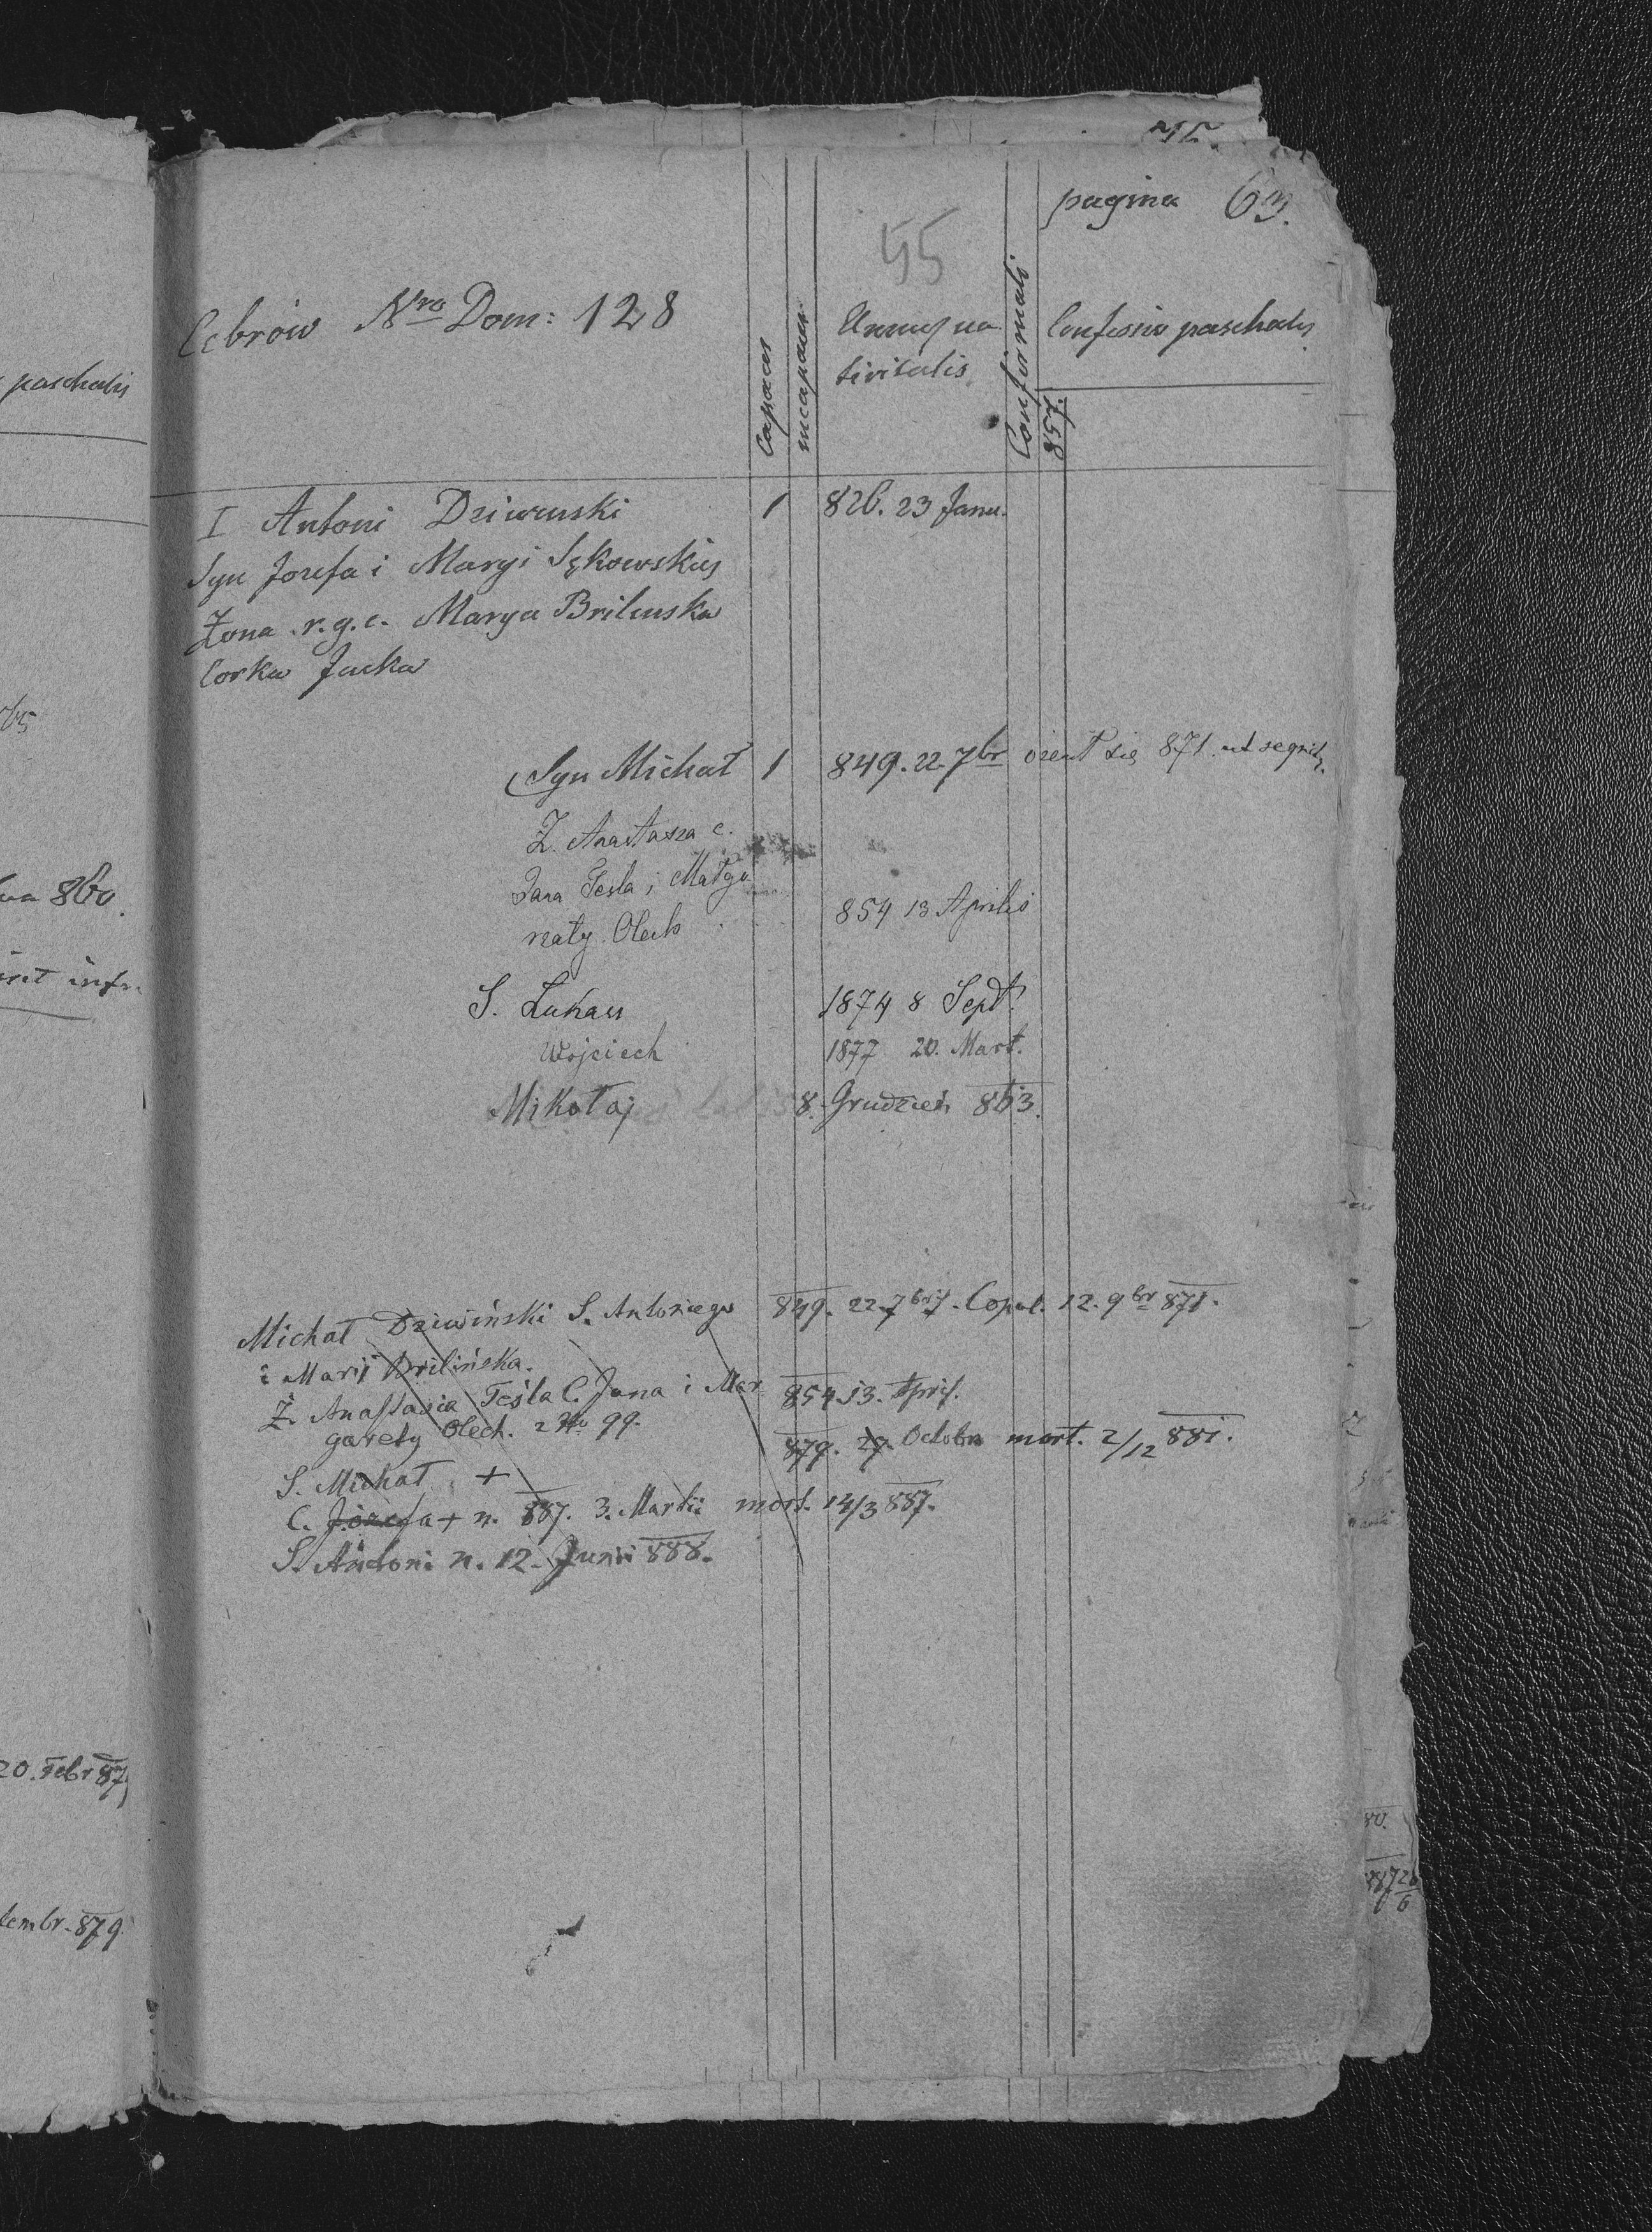 pagina 63.
55
Cebrów Nro Dom: 128
Capaces
incapaces
Annus na
tivitatis
Confirmati
Confessio paschalis
857.
I Antoni Dziwinski 1 826. 23 Janu.
Syn Jozefa i Maryi Sękowskiej
Żona r.g.c. Marya Brilinska
Corka Jacka
Syn Michał 1 849. 22. 7br ożenił się 871. ut sequit.
Ż. Anastazia c.
Jana Tesla i Małgo
rzaty Olech 854 13 Aprilis
S. Łukasz 1874 8 Sept.
Wojciech 1877 20. Mart.
Mikołaj 8. Grudzień 863.
Michał Dziwiński S. Antoniego 849. 22. 7bris. Copul. 12. 9br 871.
i Marij Brilińska.
Ż. Anastasia Teśla C. Jana i Mar 854 13. April.
garety Olech. z No 99.
S. Michał + 879. 27. Octobr. mort. 2/12 881.
C. Józefa + n. 887. 3. Martii mort. 14/3 887.
S. Antoni n. 12. Junii 888.
paschalis
65
860.
20. Febr 87
tembr. 879.